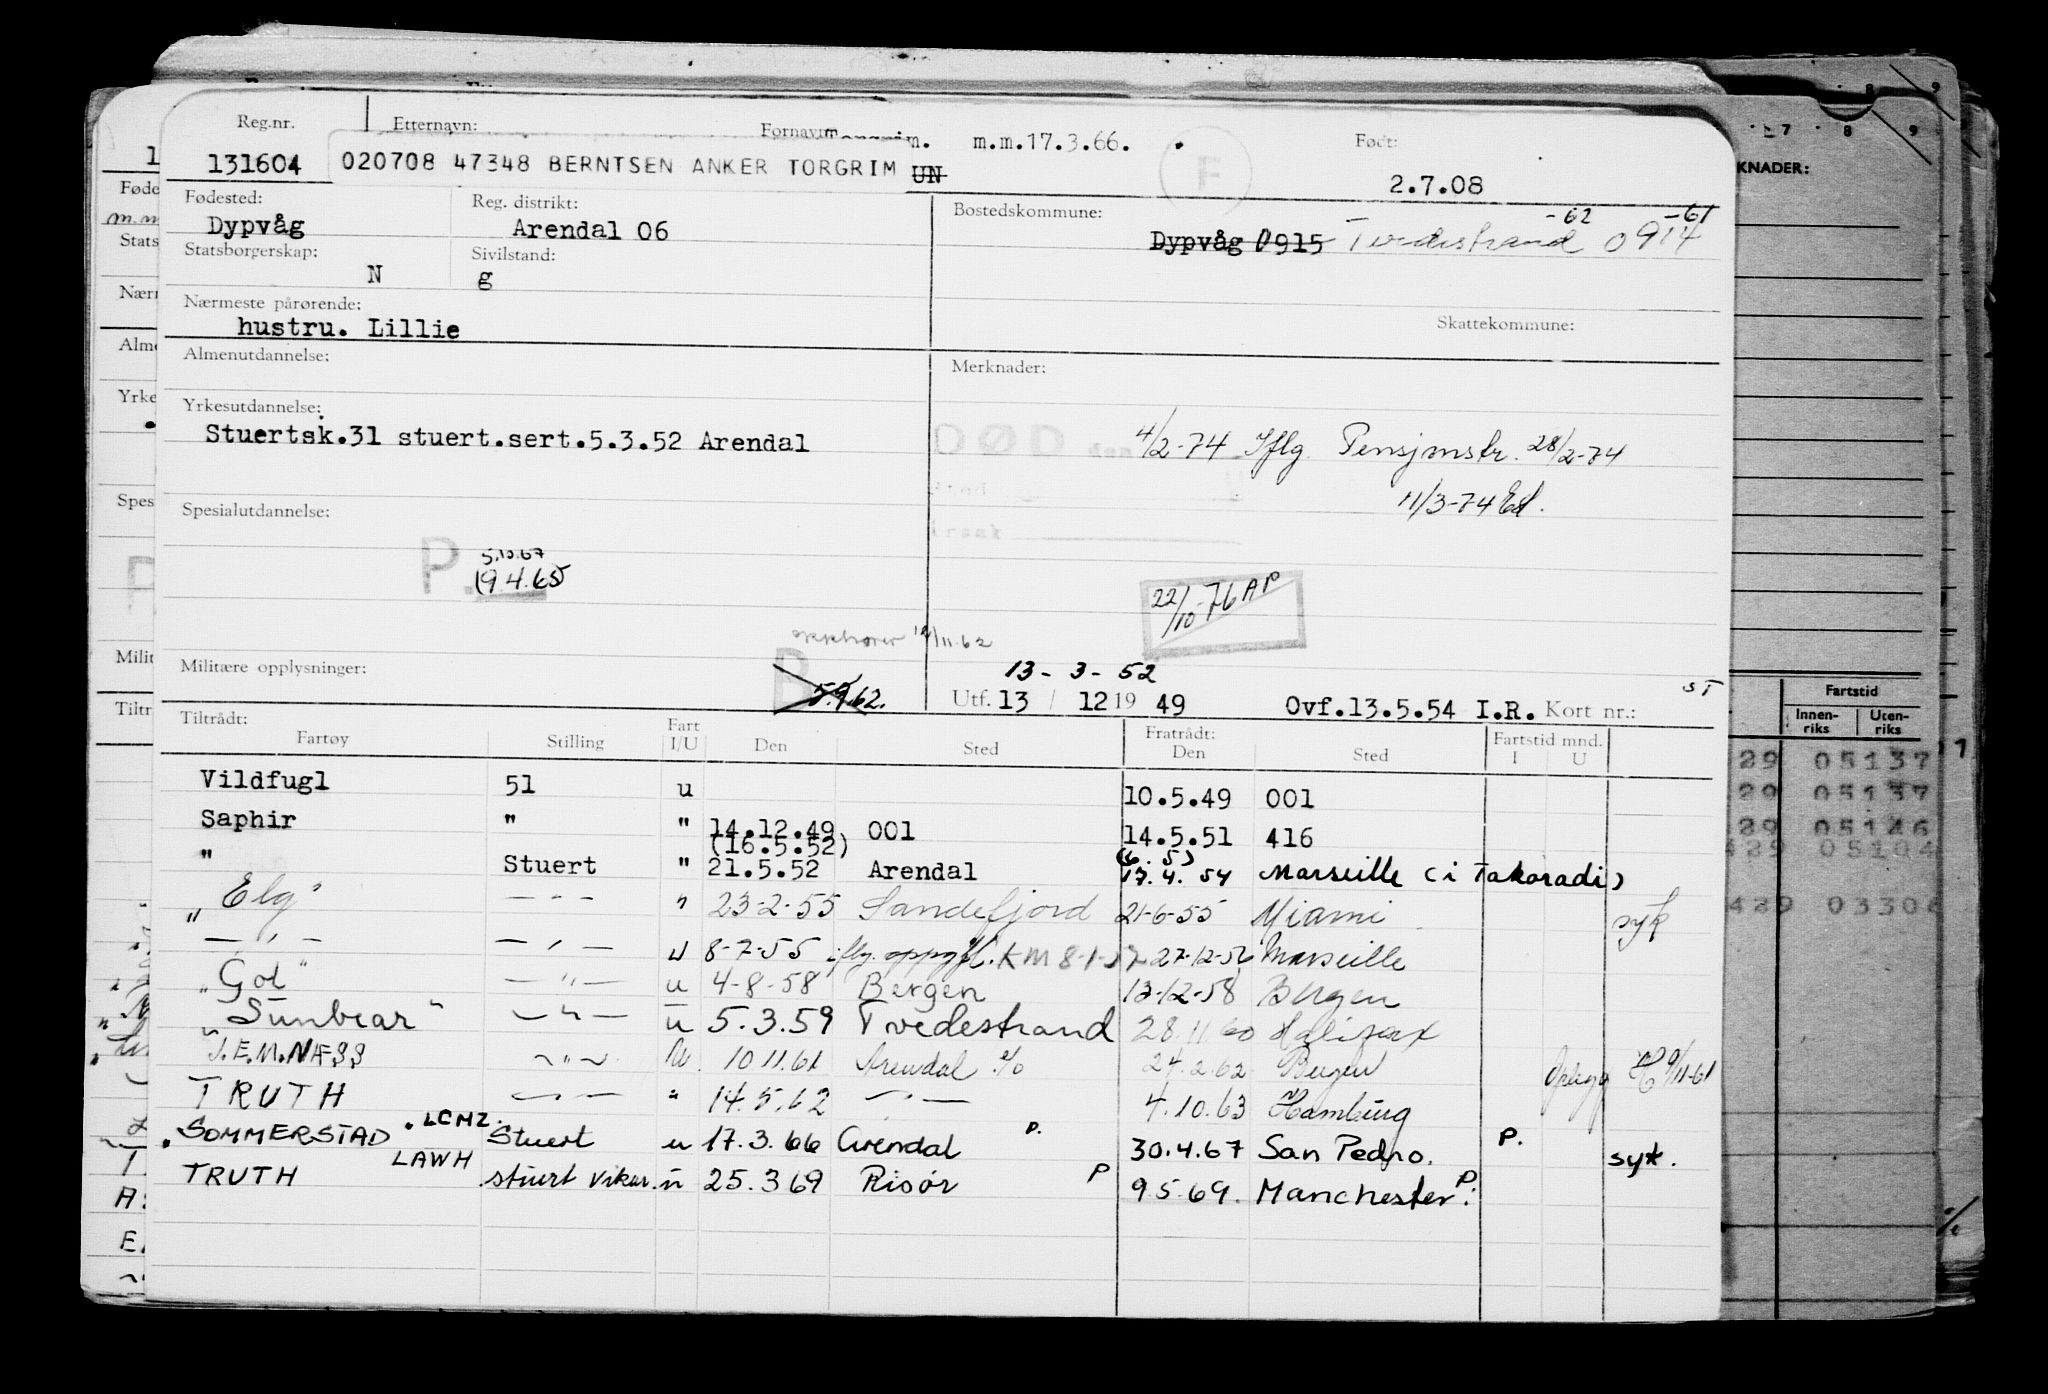 Reg.nr. Etternavn: Fornavn m.m.17.3.66. Født:
131604 020708 47348 BERNTSEN ANKER TORGRIM UN F 2.7.08
Fødested: Reg. distrikt: Bostedskommune:
Dypvåg Arendal 06 Dypvåg 0915 Tvedestrand -62 0914 -61
Statsborgerskap: Sivilstand:
N g
Nærmeste pårørende:
hustru. Lillie Skattekommune:
Almenutdannelse: Merknader:
Yrkesutdannelse:
Stuertsk.31 stuert.sert.5.3.52 Arendal DØD den 4/2-74 Iflg. Pensjonstr. 28/2-74
11/3-74 Ed.
Spesialutdannelse: Årsak
P. 5.10.67
19.4.65
22/10-76 AP
opphører 12/11.62
Militære opplysninger: P 5.9.62. 13-3-52
Utf. 13 / 12 19 49 Ovf.13.5.54 I.R. Kort nr.: ST
Tiltrådt: Fratrådt:
Fartøy Stilling Fart I/U Den Sted Den Sted Fartstid mnd. I U
Vildfugl 51 u 10.5.49 001
Saphir " " 14.12.49 001 14.5.51 416
(16.5.52) (6. 5)
" Stuert " 21.5.52 Arendal 17.4.54 Marseille (i Takoradi)
"Elg" — " — " 23-2-55 Sandefjord 21-6-55 Miami syk
— " — — " — u 8-7-55 iflg. oppg. KM 8-1-57 27-12-56 Marseille
"Gol" — " — u 4-8-58 Bergen 13-12-58 Bergen
"Sunbear" — " — u 5.3.59 Tvedestrand 28.11.60 Halifax
J.E.M.NÆSS — " — u. 10.11.61 Arendal 24.2.62 Bergen 9/11-61
TRUTH — " — " 14.5.62 — " — 4.10.63 Hamburg
SOMMERSTAD LCMZ. Stuert u 17.3.66 Arendal P. 30.4.67 San Pedro. P. syk.
TRUTH LAWH stuert vikar. u 25.3 69 Risør P 9.5.69. Manchester P.
KNADER:
Fartstid
Innen-riks Uten-riks
29 05137
29 05137
29 05146
429 05104
429 03304